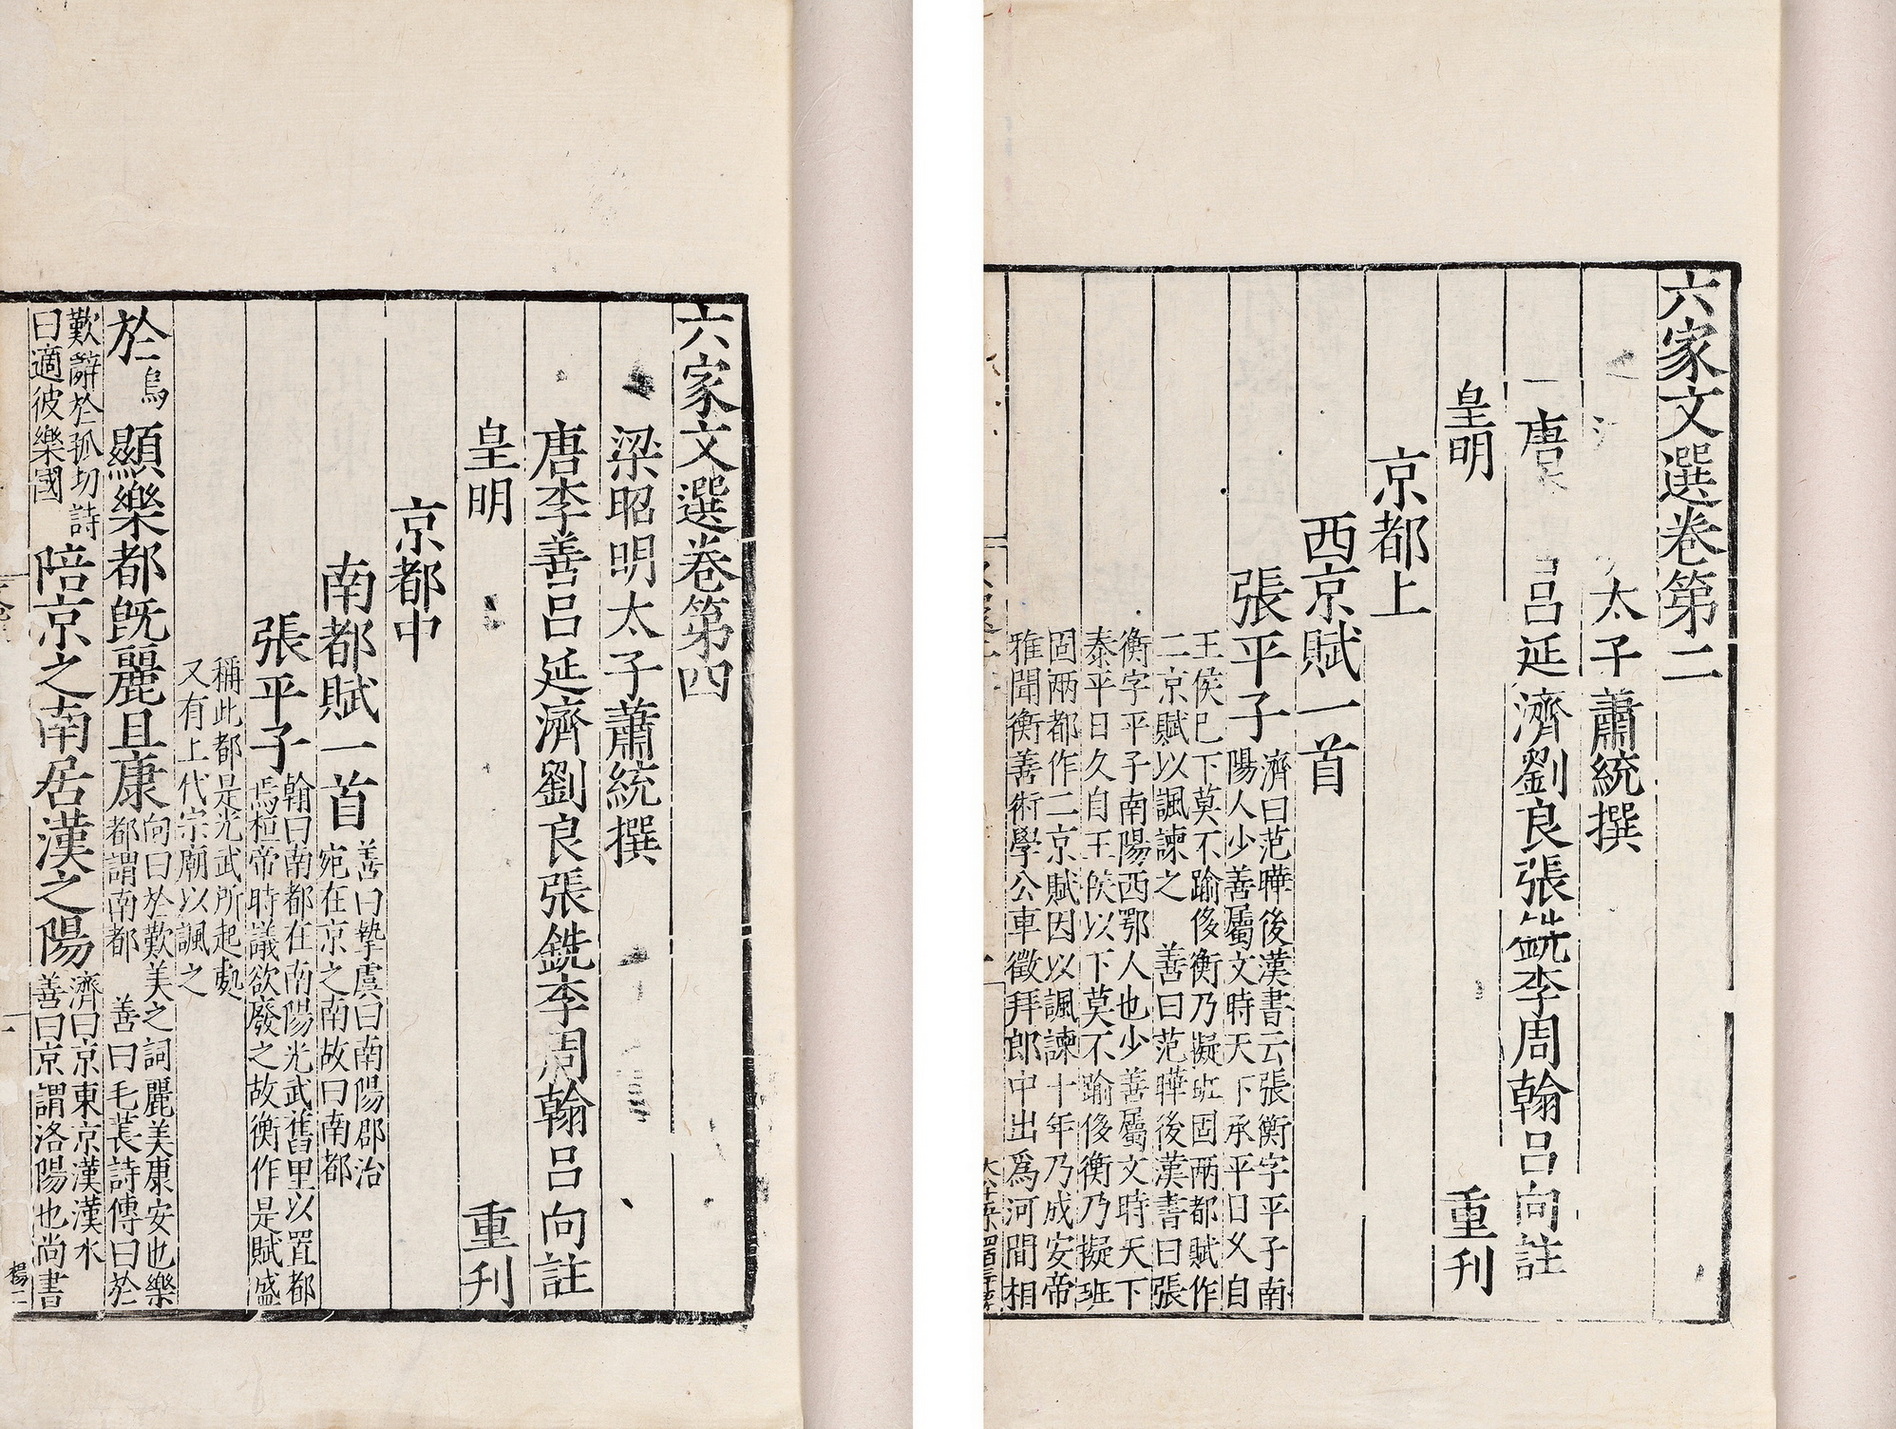 六家文選卷第二
太子蕭統撰
唐 呂延濟劉良張銑李周翰呂向註
皇明 重刊
京都上
西京賦一首
張平子
濟曰范曄後漢書云張衡字平子南
陽人少善屬文時天下承平日久自
王侯已下莫不踰侈衡乃擬班固兩都賦作
二京賦以諷諫之 善曰范曄後漢書曰張
衡字平子南陽西鄂人也少善屬文時天下
泰平日久自王侯以下莫不踰侈衡乃擬班
固兩都作二京賦因以諷諫十年乃成安帝
雅聞衡善術學公車徵拜郎中出爲河間相
六家文選卷第四
梁昭明太子蕭統撰
唐李善呂延濟劉良張銑李周翰呂向註
皇明 重刊
京都中
南都賦一首
善曰摯虞曰南陽郡治
宛在京之南故曰南都
張平子
翰曰南都在南陽光武舊里以置都
焉桓帝時議欲廢之故衡作是賦盛
稱此都是光武所起處
又有上代宗廟以諷之
於烏顯樂都旣麗且康
向曰於歎美之詞麗美康安也樂
都謂南都 善曰毛萇詩傳曰於
歎辭於孤切詩
曰適彼樂國
陪京之南居漢之陽
濟曰京東京漢漢水
善曰京謂洛陽也尚書